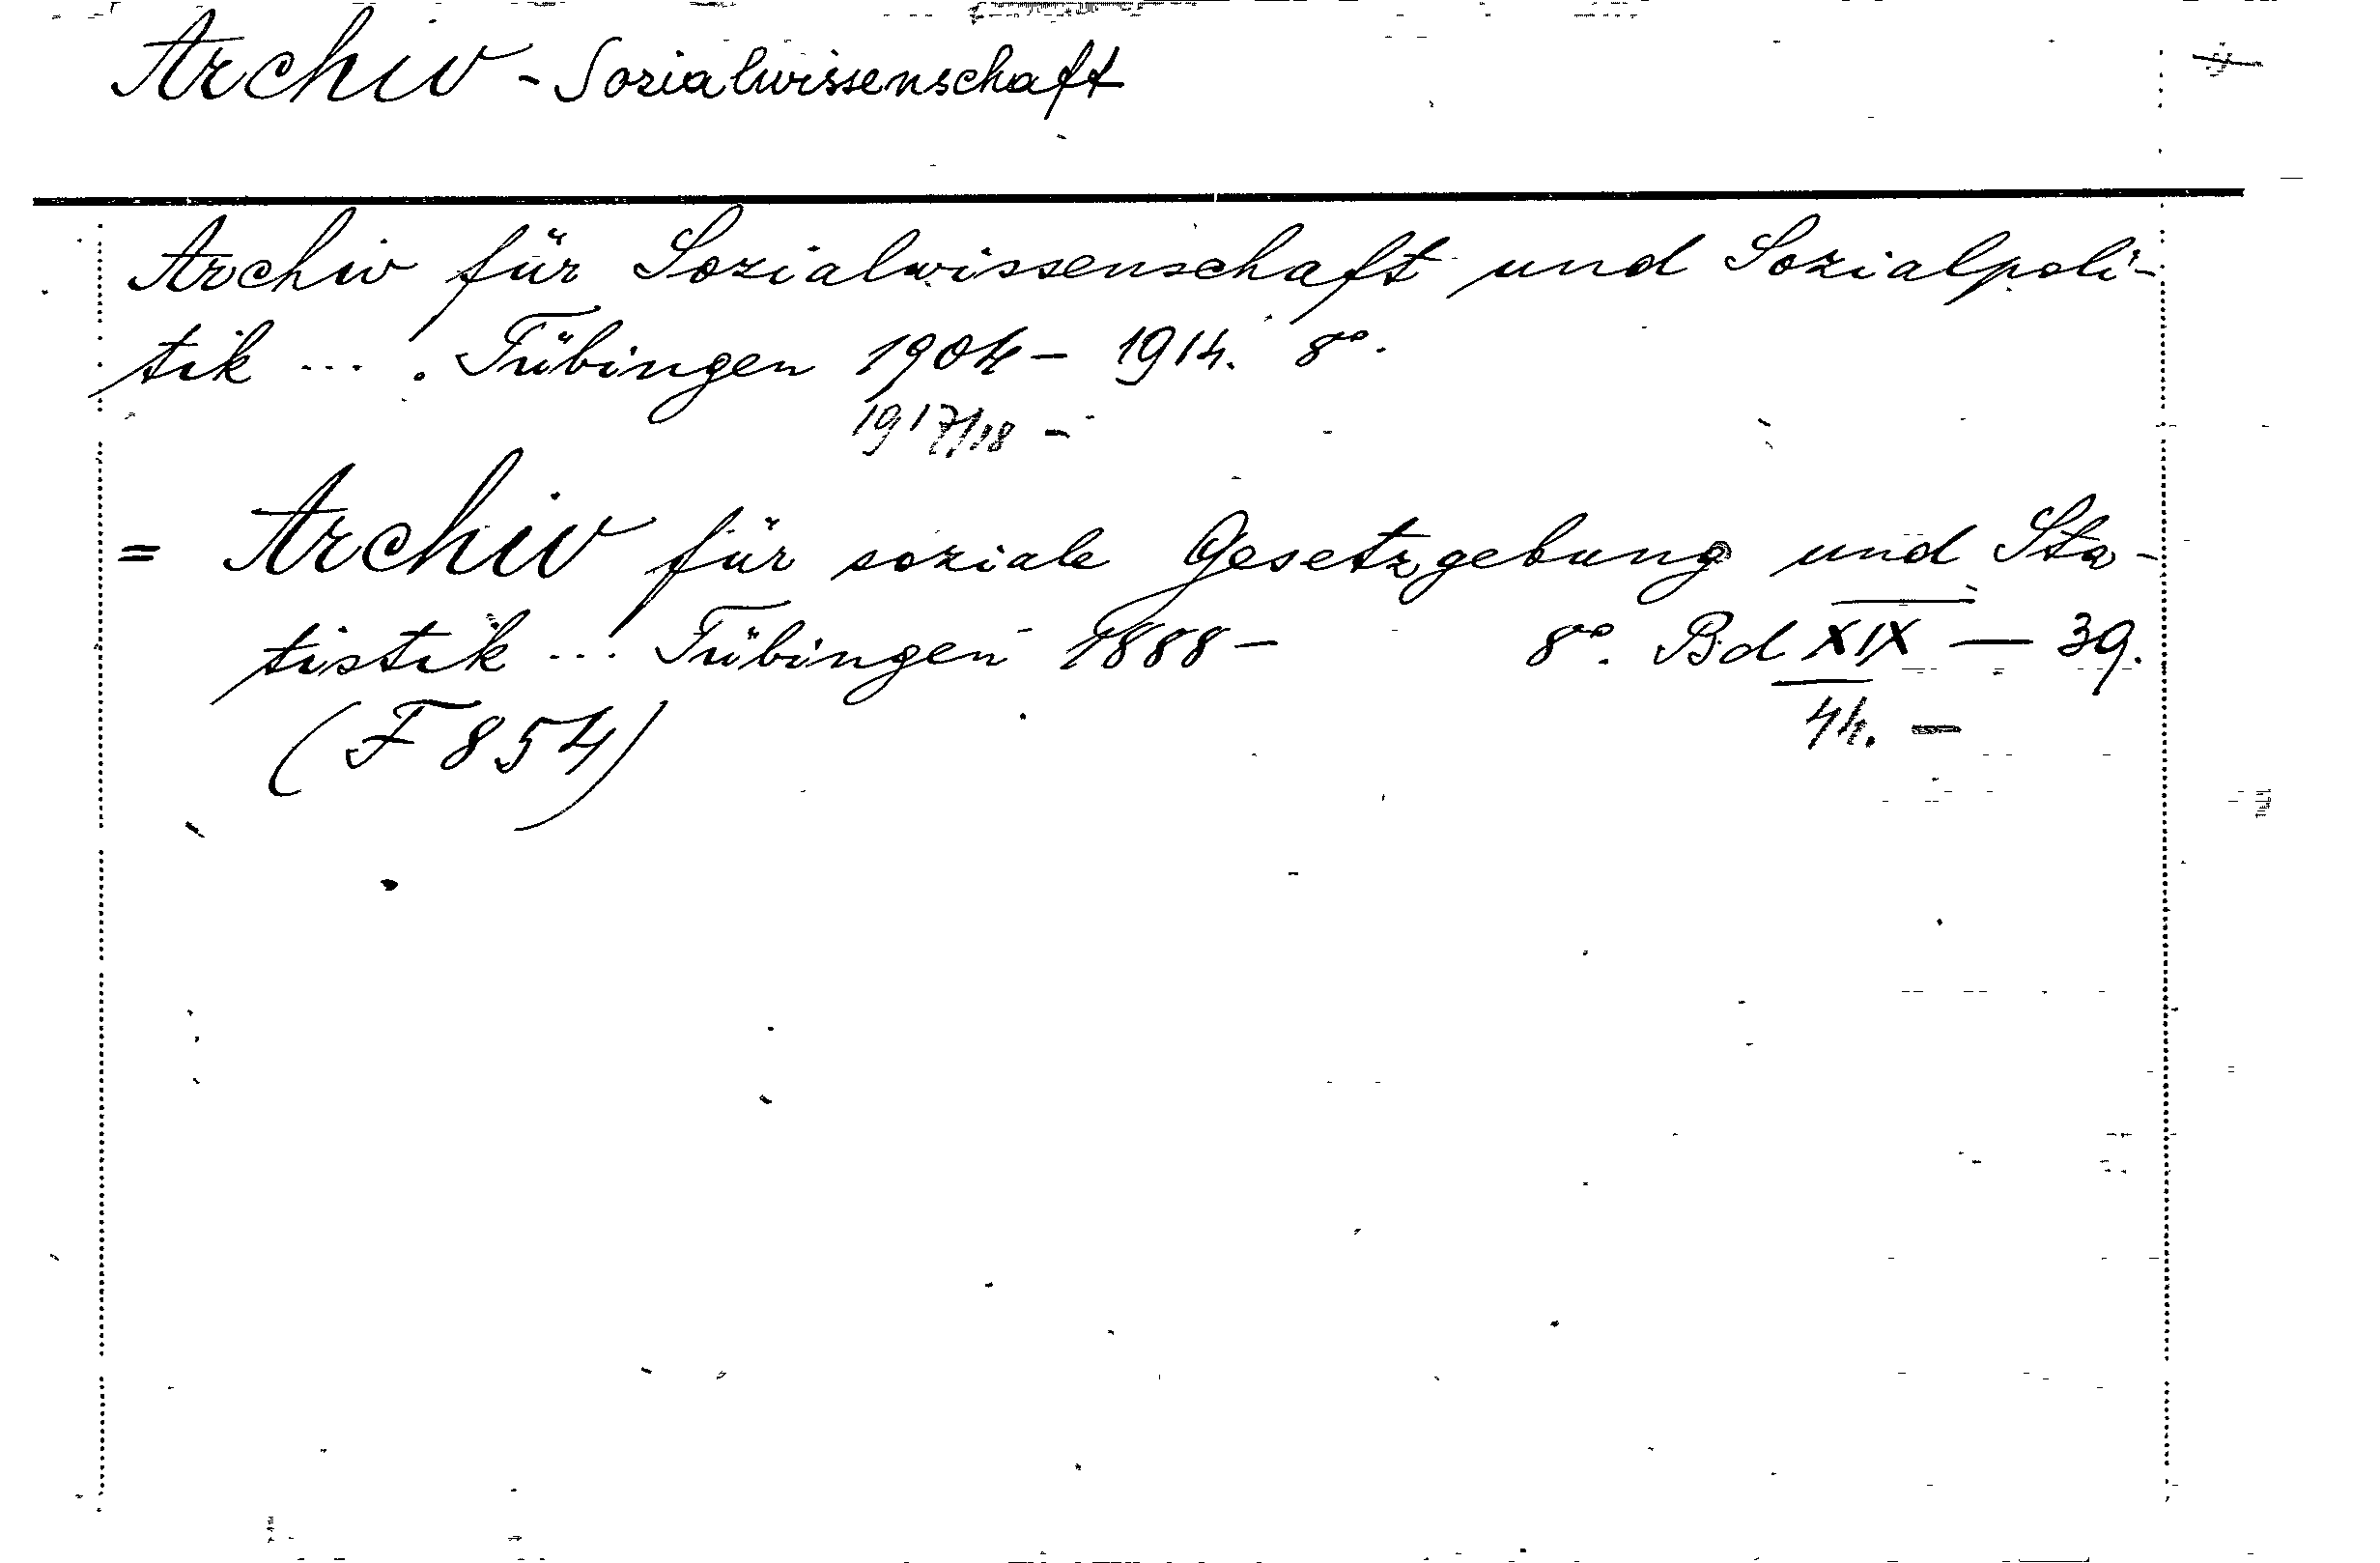 Archiv - Sozialwissenschaft
Archiv für Sozialwissenschaft und Sozialpoli-
tik .... Tübingen 1904 - 1914. 8°.
1917/18 -
= Archiv für soziale Gesetzgebung und Sta-
tistik ... Tübingen 1888 - 8°. Bd XIX — 39.
(F 854) 44. -